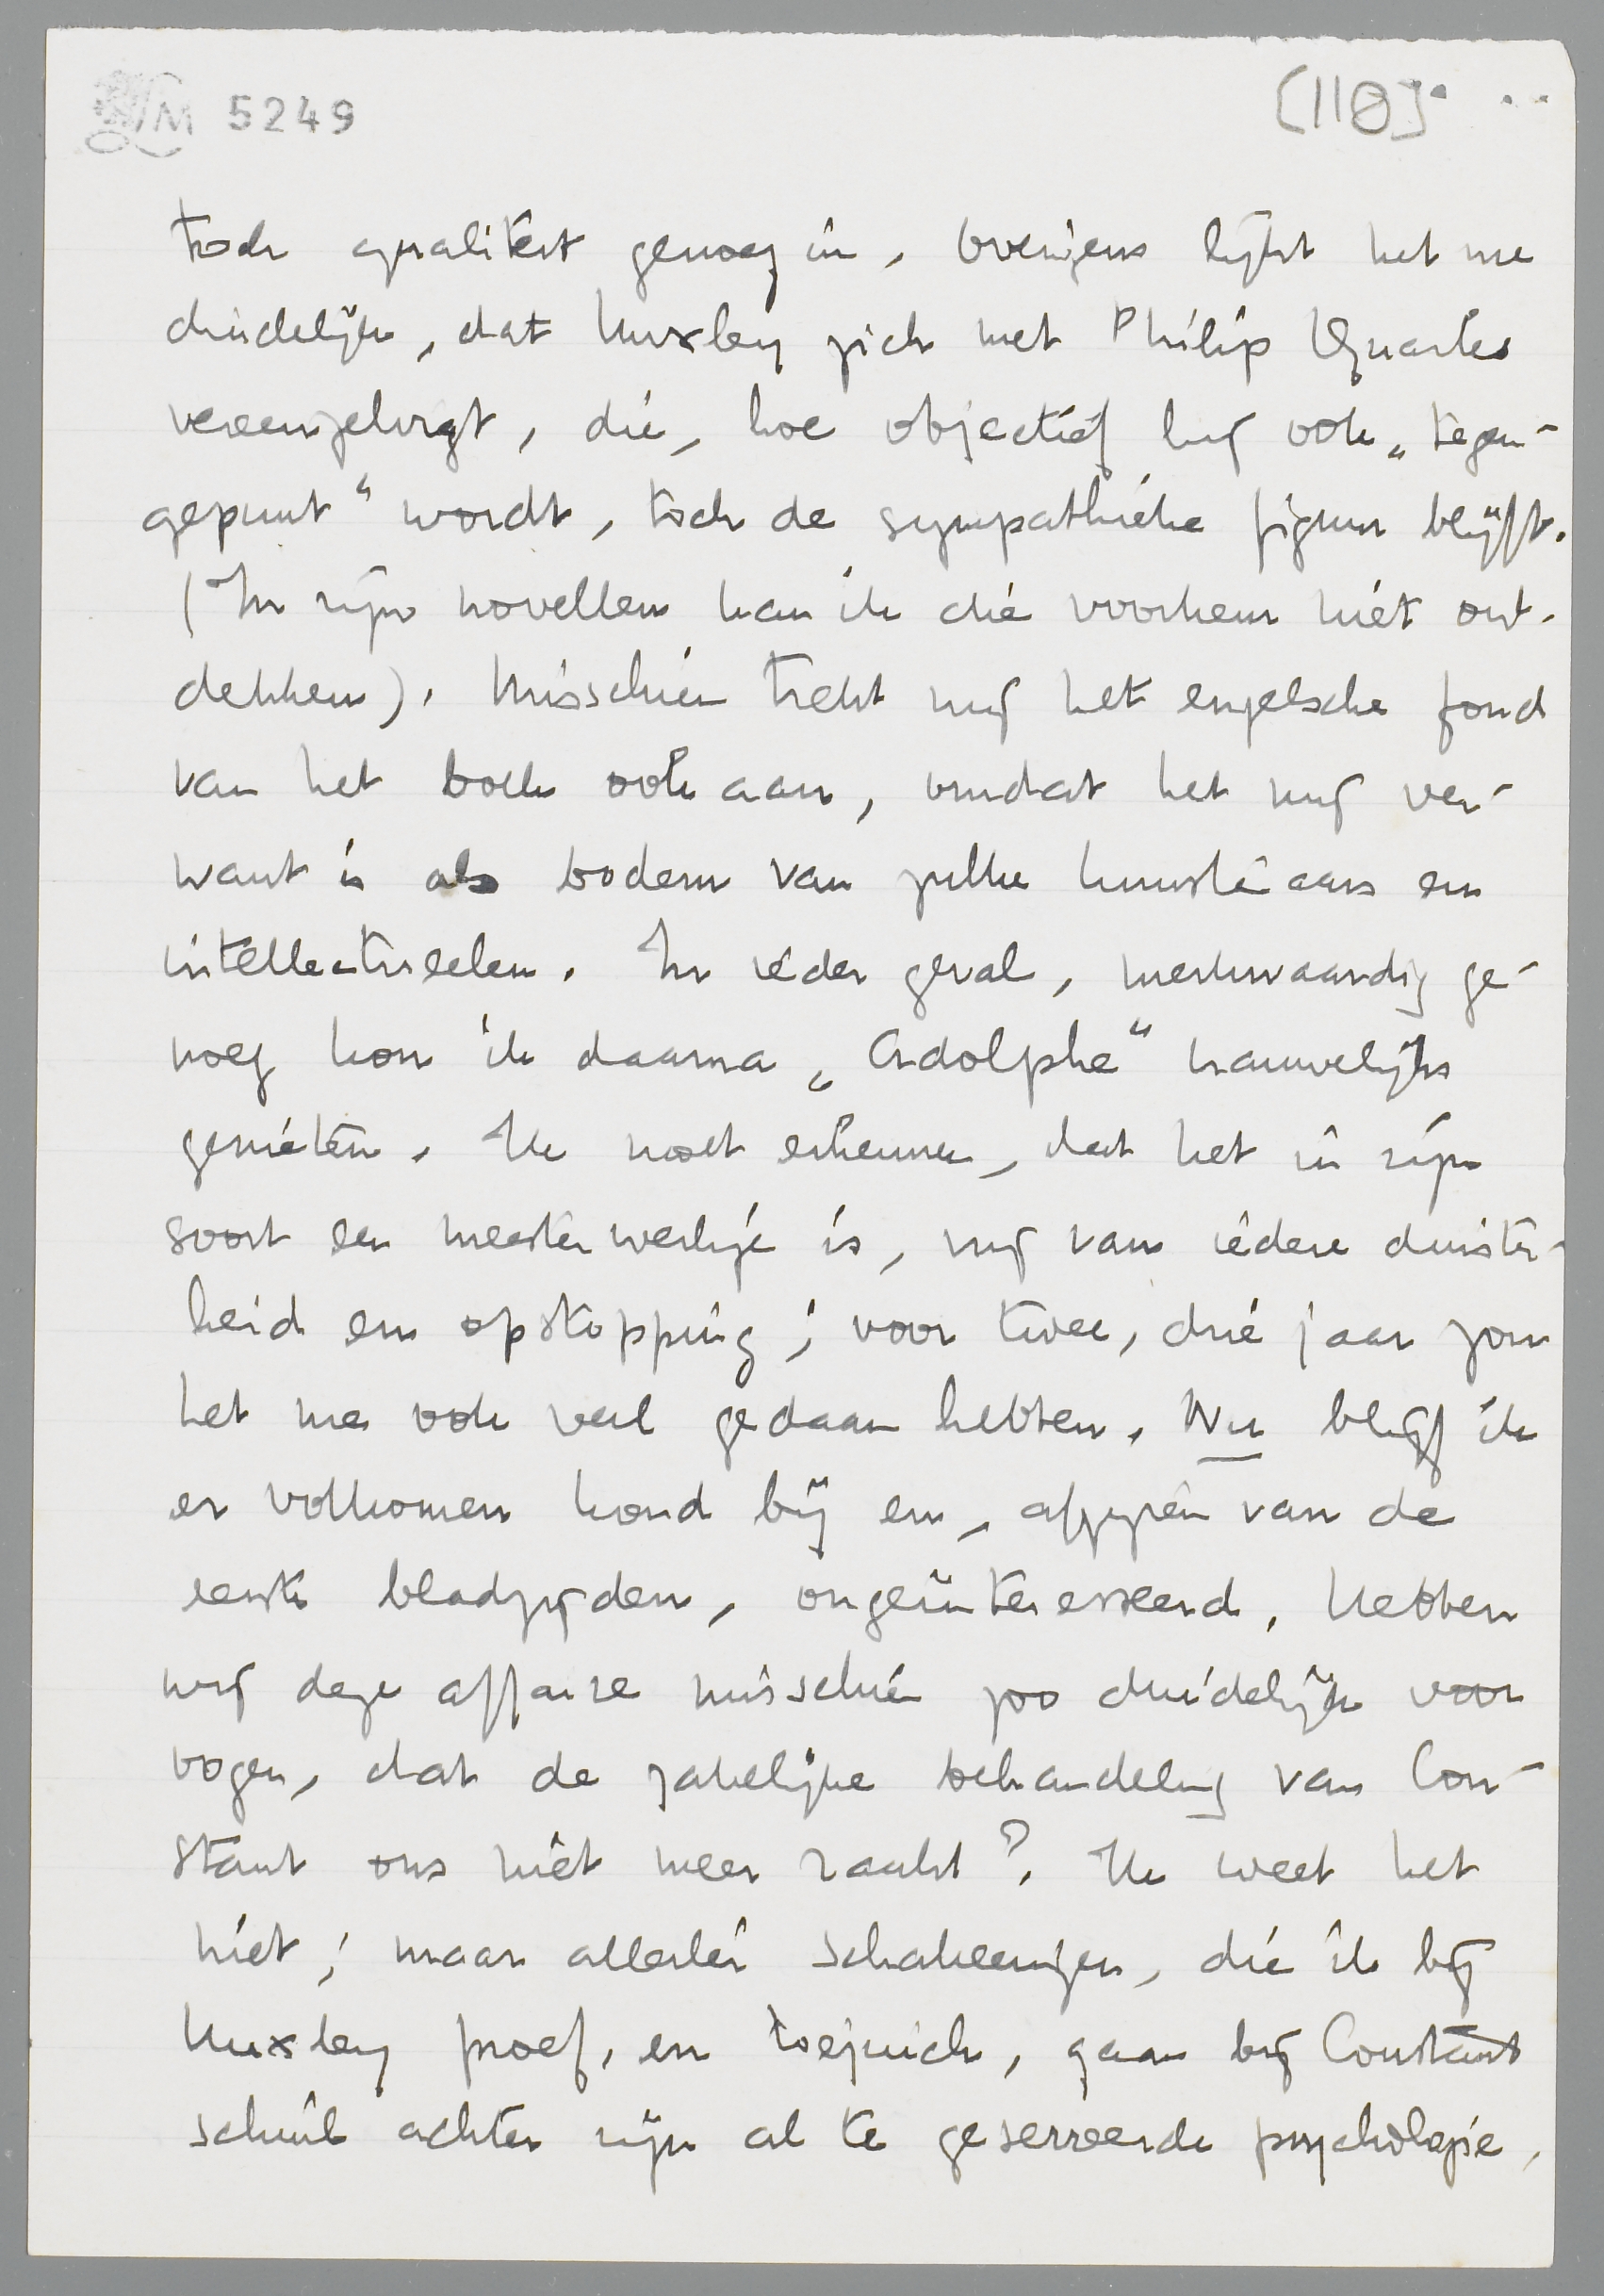 LM 5249
[118]
toch qualiteit genoeg in. Overigens lijkt het me
duidelijk, dat Huxley zich met Philip Quarles
vereenzelvigt, die, hoe objectief hij ook „tegen-
gepunt" wordt, toch de sympathieke figuur blijft.
(In zijn novellen kan ik die voorkeur niet ont-
dekken). Misschien trekt mij het engelsche fond
van het boek ook aan, omdat het mij ver-
want is als bodem van zulke kunstenaars en
intellectueelen. In ieder geval, merkwaardig ge-
noeg kon ik daarna „Adolphe" nauwelijks
genieten. Ik moet erkennen, dat het in zijn
soort een meesterwerkje is, vrij van iedere duister-
heid en opstopping; voor twee, drie jaar zou
het me ook veel gedaan hebben. Nu blijf ik
er volkomen koud bij en, afgezien van de
eerste bladzijden, ongeïnteresseerd. Hebben
wij deze affaire misschien zoo duidelijk voor
oogen, dat de zakelijke behandeling van Con-
stant ons niet meer raakt? Ik weet het
niet; maar allerlei schakeeringen, die ik bij
Huxley proef, en toejuich, gaan bij Constant
schuil achter zijn al te geserreerde psychologie,